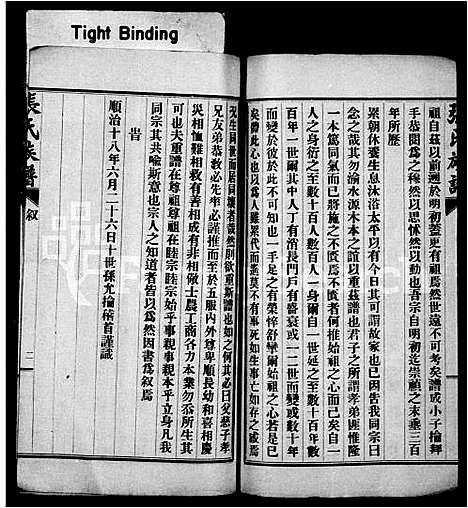 Tight Binding
張氏族譜
祖自茲以前逓於明初蓋更有祖爲然世遠不可考矣譜成小子掄拜
手恭閱爲之穆然以思愀然以動也吾宗自明初迄崇禎之末垂三百
年所歷
累朝休養生息沐浴太平以有今日其可謂故家也已今夫同宗曰
念之哉其勿渝水源木本之誼以重茲譜也君子之所謂孝弟匪惟隆
一本篤同氣而已將施之不匱焉不匱者何推始祖之心而已矣自一
人之身衍之至數十百人數百人一身爾自一世延之至數十百年數
百年一世爾夫此數十百人者有消長門戶有番衰或一二世或數十年
而變於彼於此不可知也一手足之有榮悴舒攣爾始祖之心若是已
矣譜此心也以爲人雖累代而謹莫不有事死如生事亡如存之感焉
張氏族譜
叙
二
況生同世而居同壤者哉然則欲重斯譜也如之何其必曰父慈子孝
兄友弟恭教必先率必謹推而至於五服內外尊卑順長幼和喜相慶
災相恤艱難相救有善相成有非相儆士農工商各力本業勿忝所生其
可也夫重譜在尊祖在睦宗睦宗始乎事親事親本乎立身凡我
同宗其共喻斯意也宗人之知道者皆以爲然因書爲叙焉
旹
順治十八年六月二十六日十世孫尤掄稽首謹識